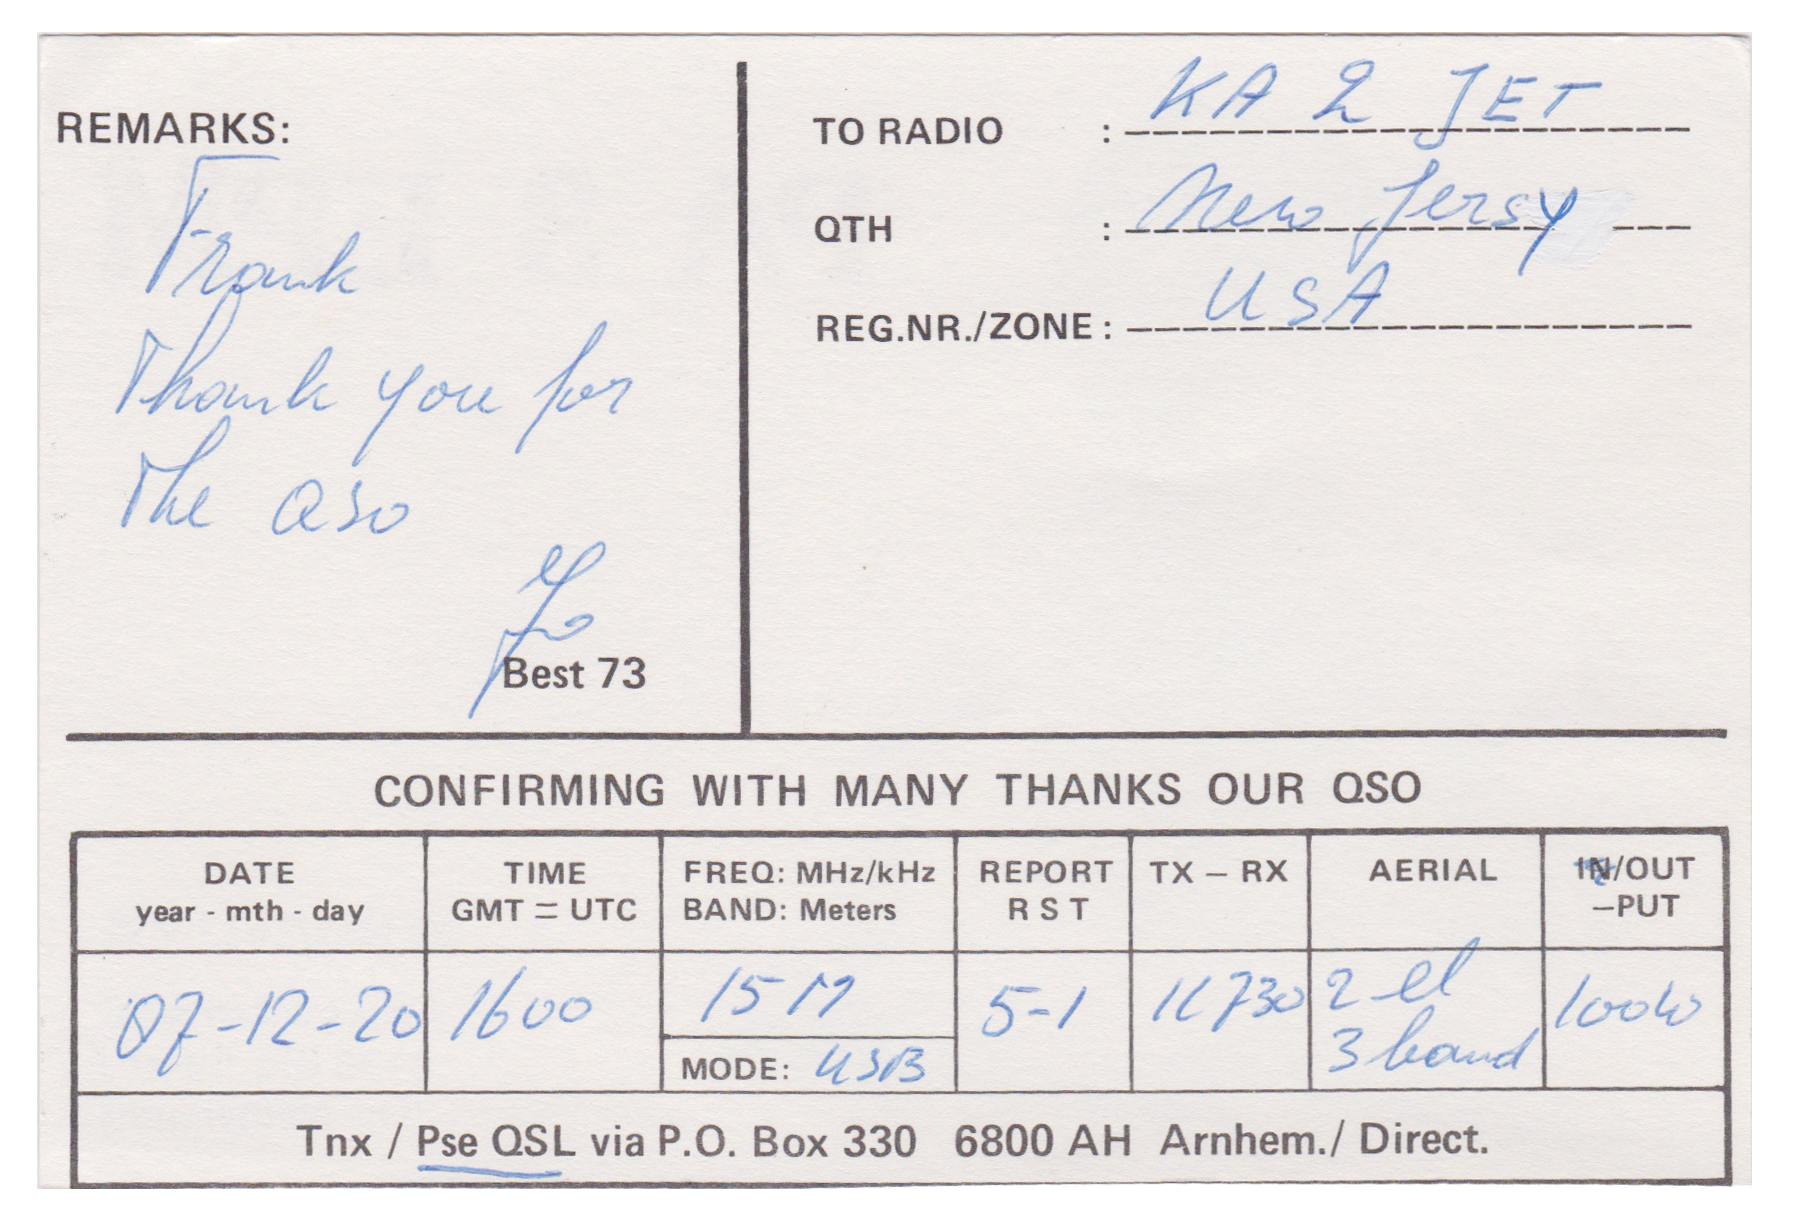 REMARKS:
Frank
Thank you for
the QSO
Best 73
TO RADIO : KA 2 JET
QTH : New Jersy
REG.NR./ZONE : USA
CONFIRMING WITH MANY THANKS OUR QSO
DATE
year - mth - day
TIME
GMT = UTC
FREQ: MHz/kHz
BAND: Meters
REPORT
R S T
TX – RX
AERIAL
IN/OUT
–PUT
87-12-20
1600
15 M
MODE: USB
5-1
IC 730
2 el
3 band
100W
Tnx / Pse QSL via P.O. Box 330 6800 AH Arnhem./ Direct.